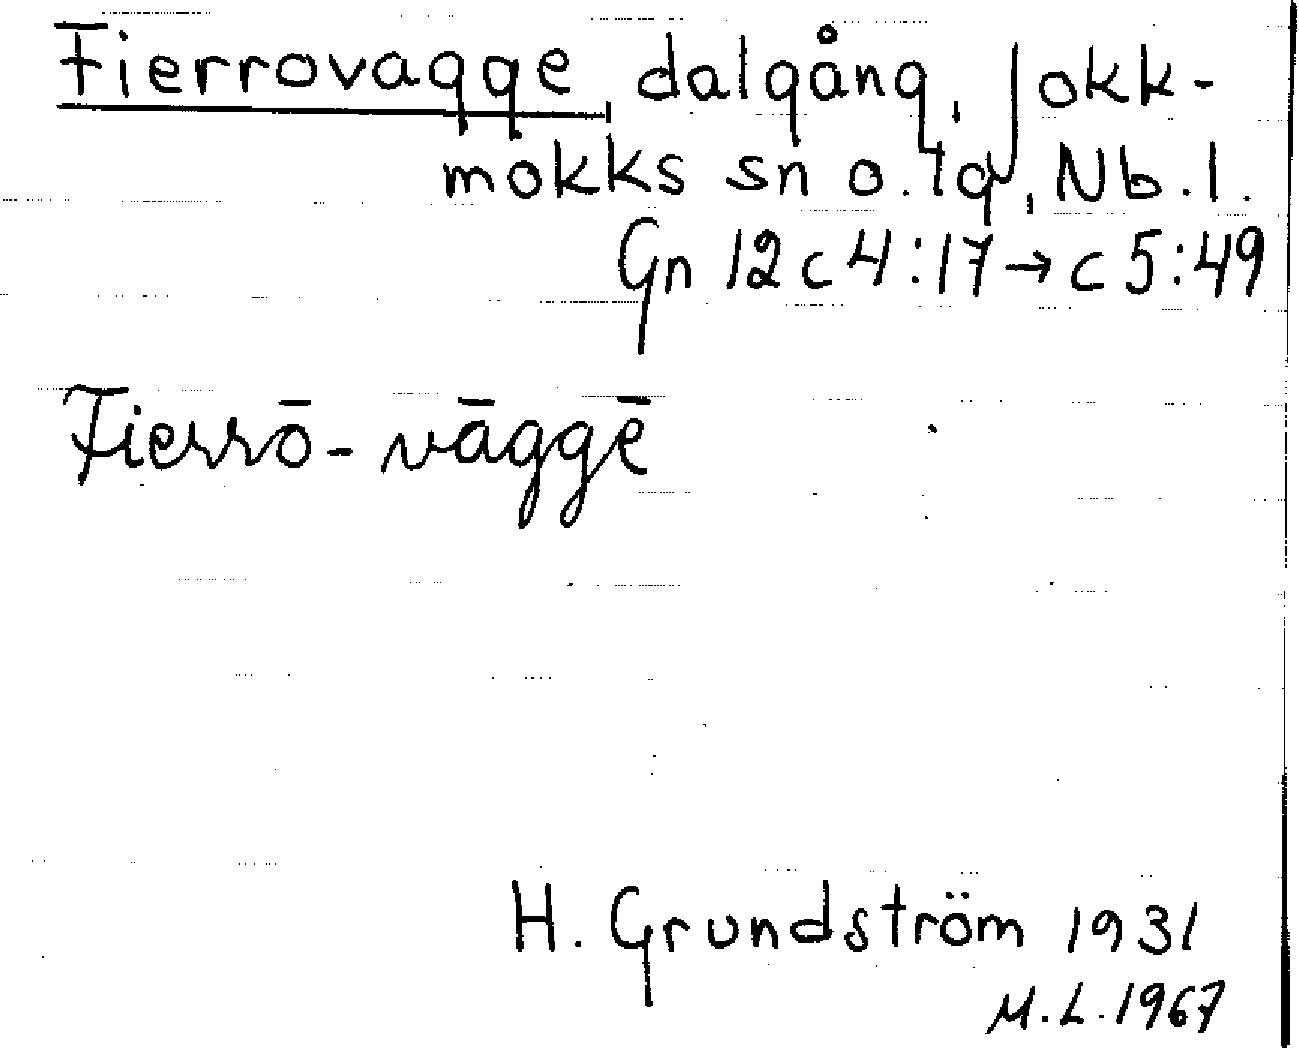 Fierrovagge, dalgång, Jokk-
mokks sn o. lg, Nb. l.
Gn 12 c 4:17 → c 5:49
Fierrō-vāggē
H. Grundström 1931
M.L. 1967